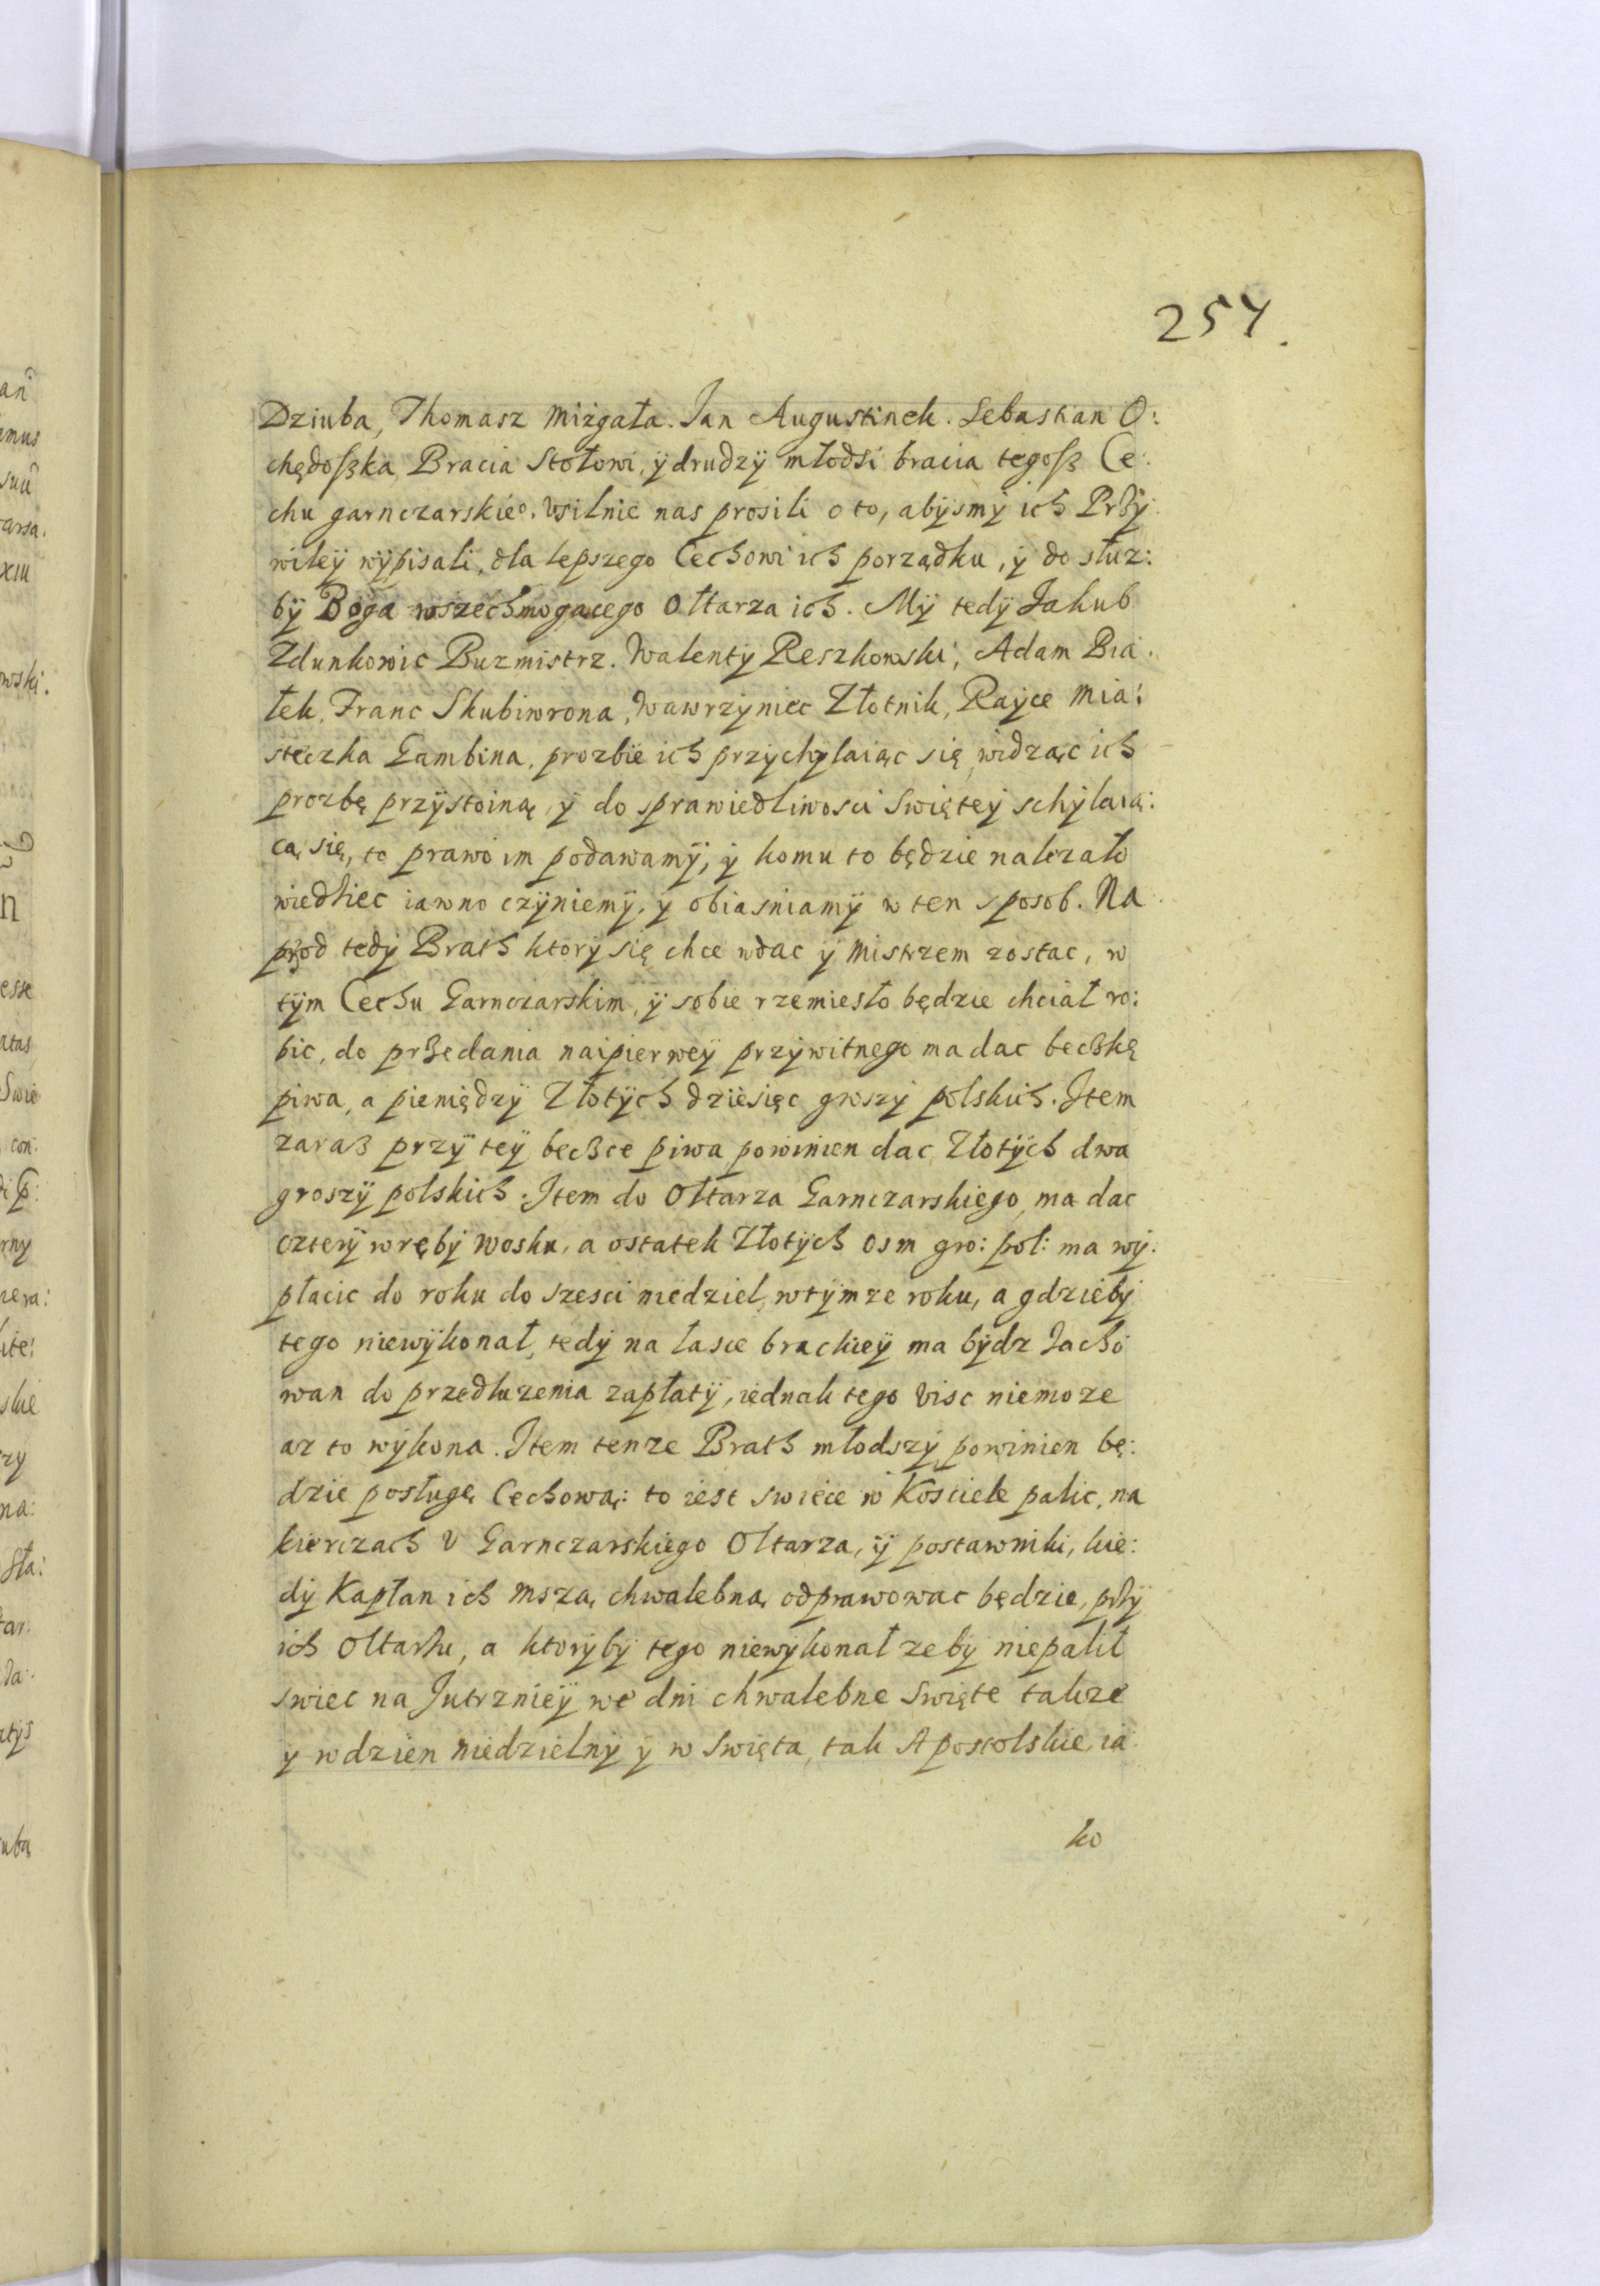 254.
Dziuba, Thomasz Mizgała. Jan Augustinek. Sebastian O:
chędoszka Bracia Stołowi, ÿ drudzÿ młodsi bracia tegosz Ce:
chu garnczarskieo. Vsilnie nas prosili o to, abÿsmÿ ich Prży:
wileÿ wÿpisali, dla lepszego Cechowi ich porządku, ÿ do słuz:
bÿ Boga wszechmogacego Ołtarza ich. Mÿ tedÿ Jakub
Zdunkowic Buzmistrz. Walentÿ Reszkowski, Adam Bia:
łek, Franc Skubiwrona, Wawrzÿniec Złotnik, Raÿce Mia:
steczka Gambina, prozbie ich przÿchÿlaiąc się, widząc ich
prozbę przÿstoiną, ÿ do sprawiedliwosci Swiętey schÿlaią:
cą się, to prawo im podawamÿ, ÿ komu to będzie nalezało
wiedziec iawno czÿniemÿ, ÿ obiasniamÿ w ten sposob. Na
przod tedÿ Brath ktorÿ się chce wdac ÿ Mistrzem zostac, w
tÿm Cechu Garnczarskim, ÿ sobie rzemiesło będzie chciał ro:
bic, do przedania naipierweÿ przÿwitnego ma dac beczkę
piwa, a pieniędzÿ Złotÿch dziesięc groszÿ polskich. Item
zaraz przÿ teÿ beczce piwa powinien dac Złotÿch dwa
groszÿ polskich. Item do Ołtarza Garnczarskiego, ma dac
czterÿ wrębÿ wosku, a ostatek Złotÿch osm gro: pol: ma wÿ:
płacic do roku do szesci niedziel, w tÿmze roku, a gdziebÿ
tego niewÿkonał, tedÿ na łasce brackieÿ ma bÿdz zacho
wan do przedłuzenia zapłatÿ, iednak tego visc niemoze
az to wÿkona. Item tenze Brath młodszÿ powinien bę:
dzie posługę Cechową: to iest swiece w Kosciele palic, na
kierczach v Garnczarskiego Oltarza, ÿ postawniki, kie:
dÿ Kapłan ich Mszą chwalebną odprawowac będzie, prży
ich Oltarżu, a ktorÿbÿ tego niewÿkonał zebÿ niepalił
swiec na Jutrznieÿ we dni chwalebne Swięte takze
y w dzien niedzielnÿ ÿ w Swięta, tak Apostolskie ia
ko